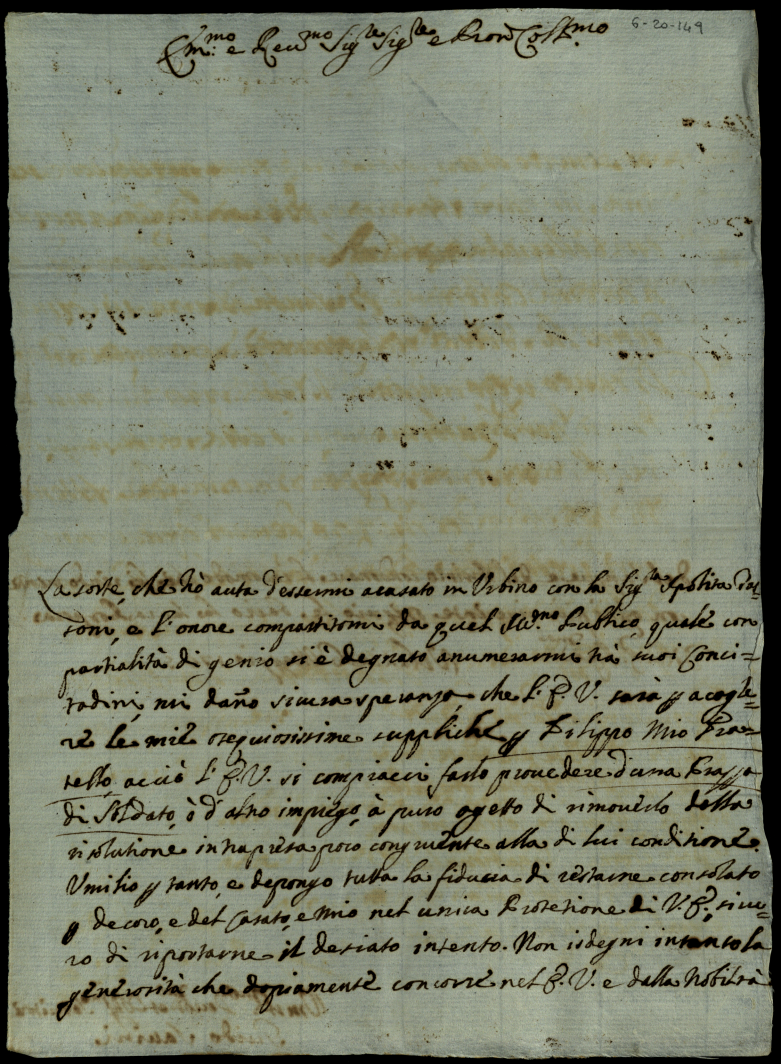 6-20-149
Em:mo e Reu.mo Sig.re Sig.re e Pron Coll.mo
La sorte, che hò auta d'essermi acasato in Vrbino con la Sig.ra Ipolita
toni, e l'onore compartitomi da quel Publico, quale con
partialità di genio si è degnato anumerarmi trà suoi Conci=
tadini, mi dano sicura speranza, che l'E. V. sarà p acoglie=
re le mie osequiosissime suppliche p Filippo Mio Fra=
tello, acciò l'E. V. si compiacci farlo provedere d'una Piazza
di Soldato, ò d'altro impiego, à puro ogetto di rimoverlo dalla
risolutione intrapresa poco congruente alla di lui conditione.
Vmilio p tanto, e depongo tutta la fiducia di restarne consolato
p decoro, e del Casato, e Mio nel unica Protetione di V. E., sicu=
ro di riportarne il desiato intento. Non isdegni intanto la
generosità che dopiamente concorre nel E. V. e dalla Nobiltà